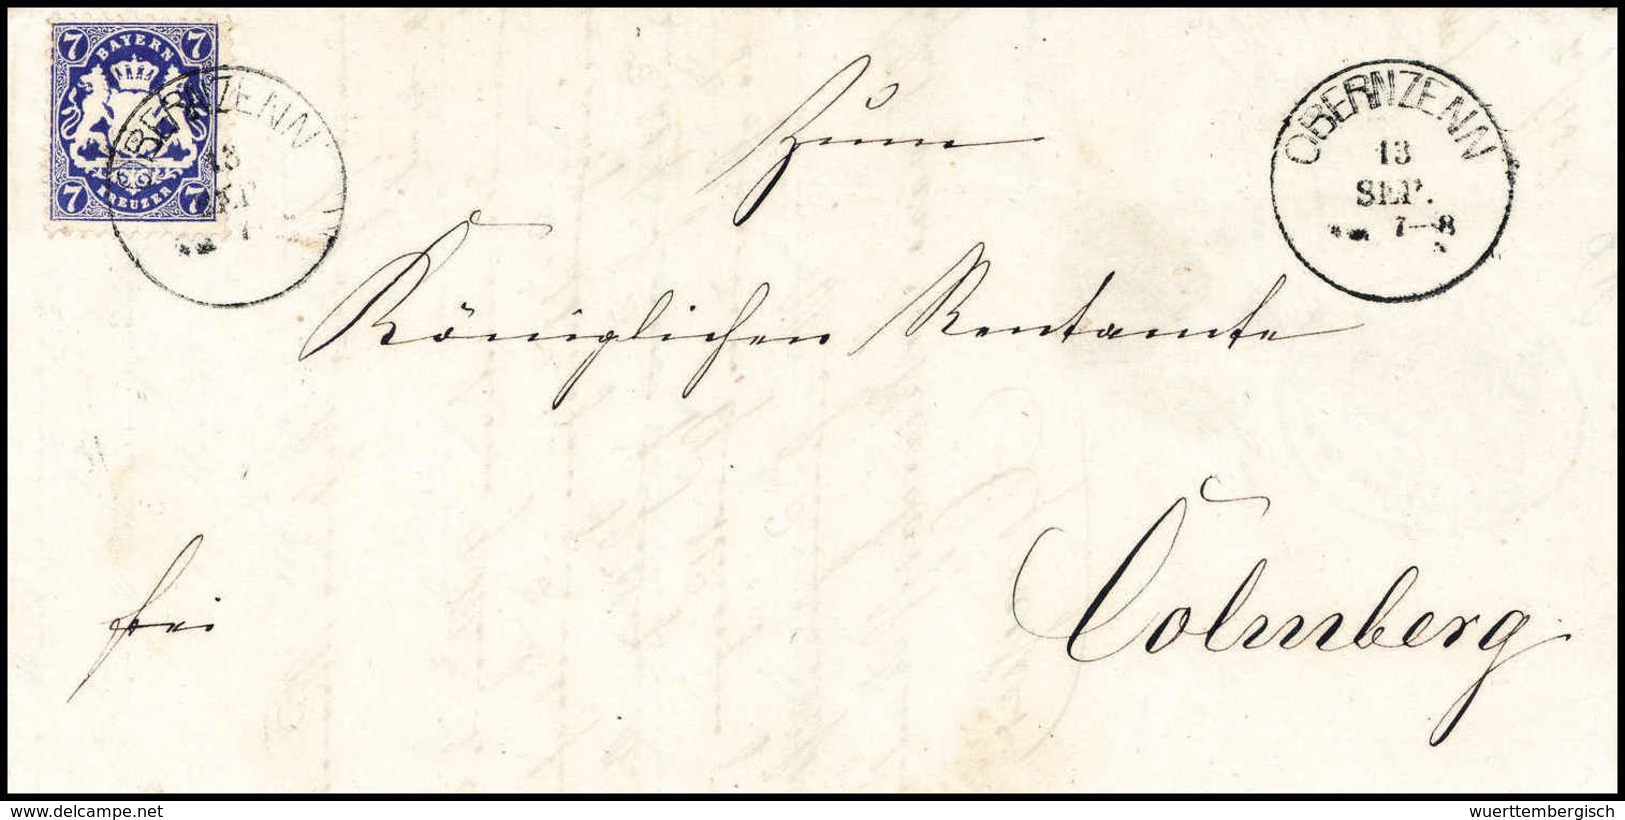 7 BAYERN 7
7 KREUZER 7
OBERNZENN
13
SEP
7
OBERNZENN
13
SEP.
7—8
Zum
Königlichen Rentamte
frei
Colmberg
www.delcampe.net
wuerttembergisch